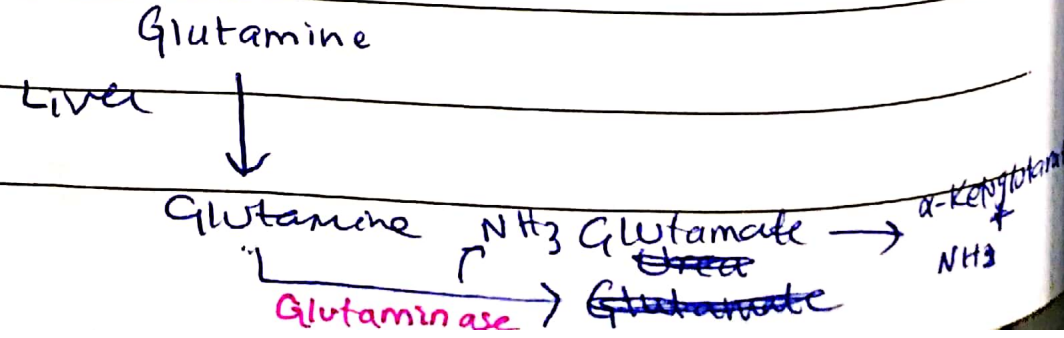 Glutamine
Liver
Glutamine NH3 Glutamate → α-Ketoglutara
+
Urea NH3
Glutamate
Glutaminase